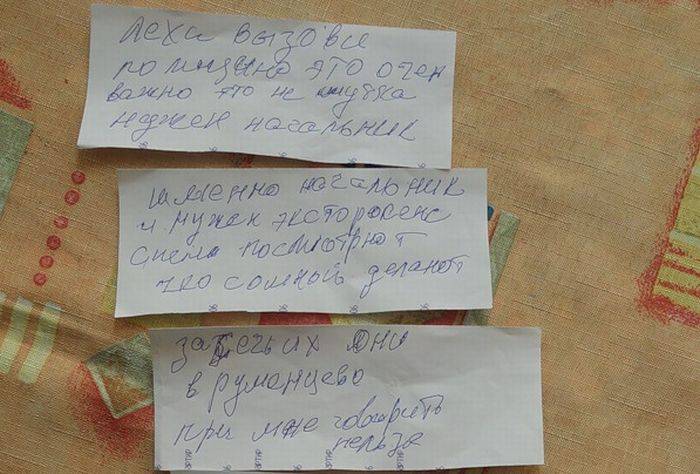 Леха вызови
полицыю это очен
важно это не шутка
нджен начальник
именно начальник
и нужен эксторосенс
снема посмотрют
что сомной делают
забечь их они
в румянцева
при мне говорить
нельзя